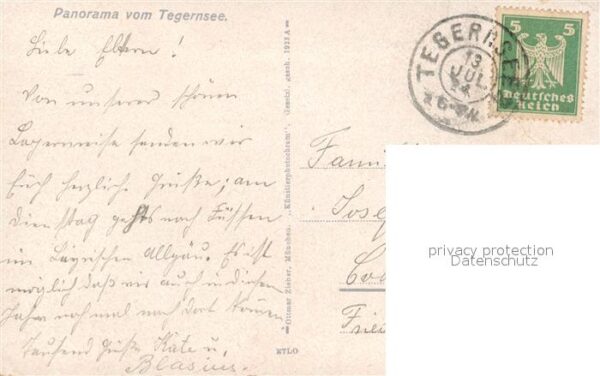 Panorama vom Tegernsee.
Liebe Eltern!
Von unserer schönen
Lagerwiese senden wir
Euch herzliche Grüße; am
Dienstag gehts nach Füssen
im bayrischen Allgäu. Es ist
möglich daß wir auch in diesem
Jahre noch mal nach dort kommen
Tausend Grüße Käte u.
Blasius.
Ottmar Zieher, München. „Künstlerphotochrom“. Gesetzl. gesch. 1923 A
RTLO
TEGERNSEE
13
JUL
5 5
Deutsches
Reich
Fami
Jose
privacy protection
Datenschutz